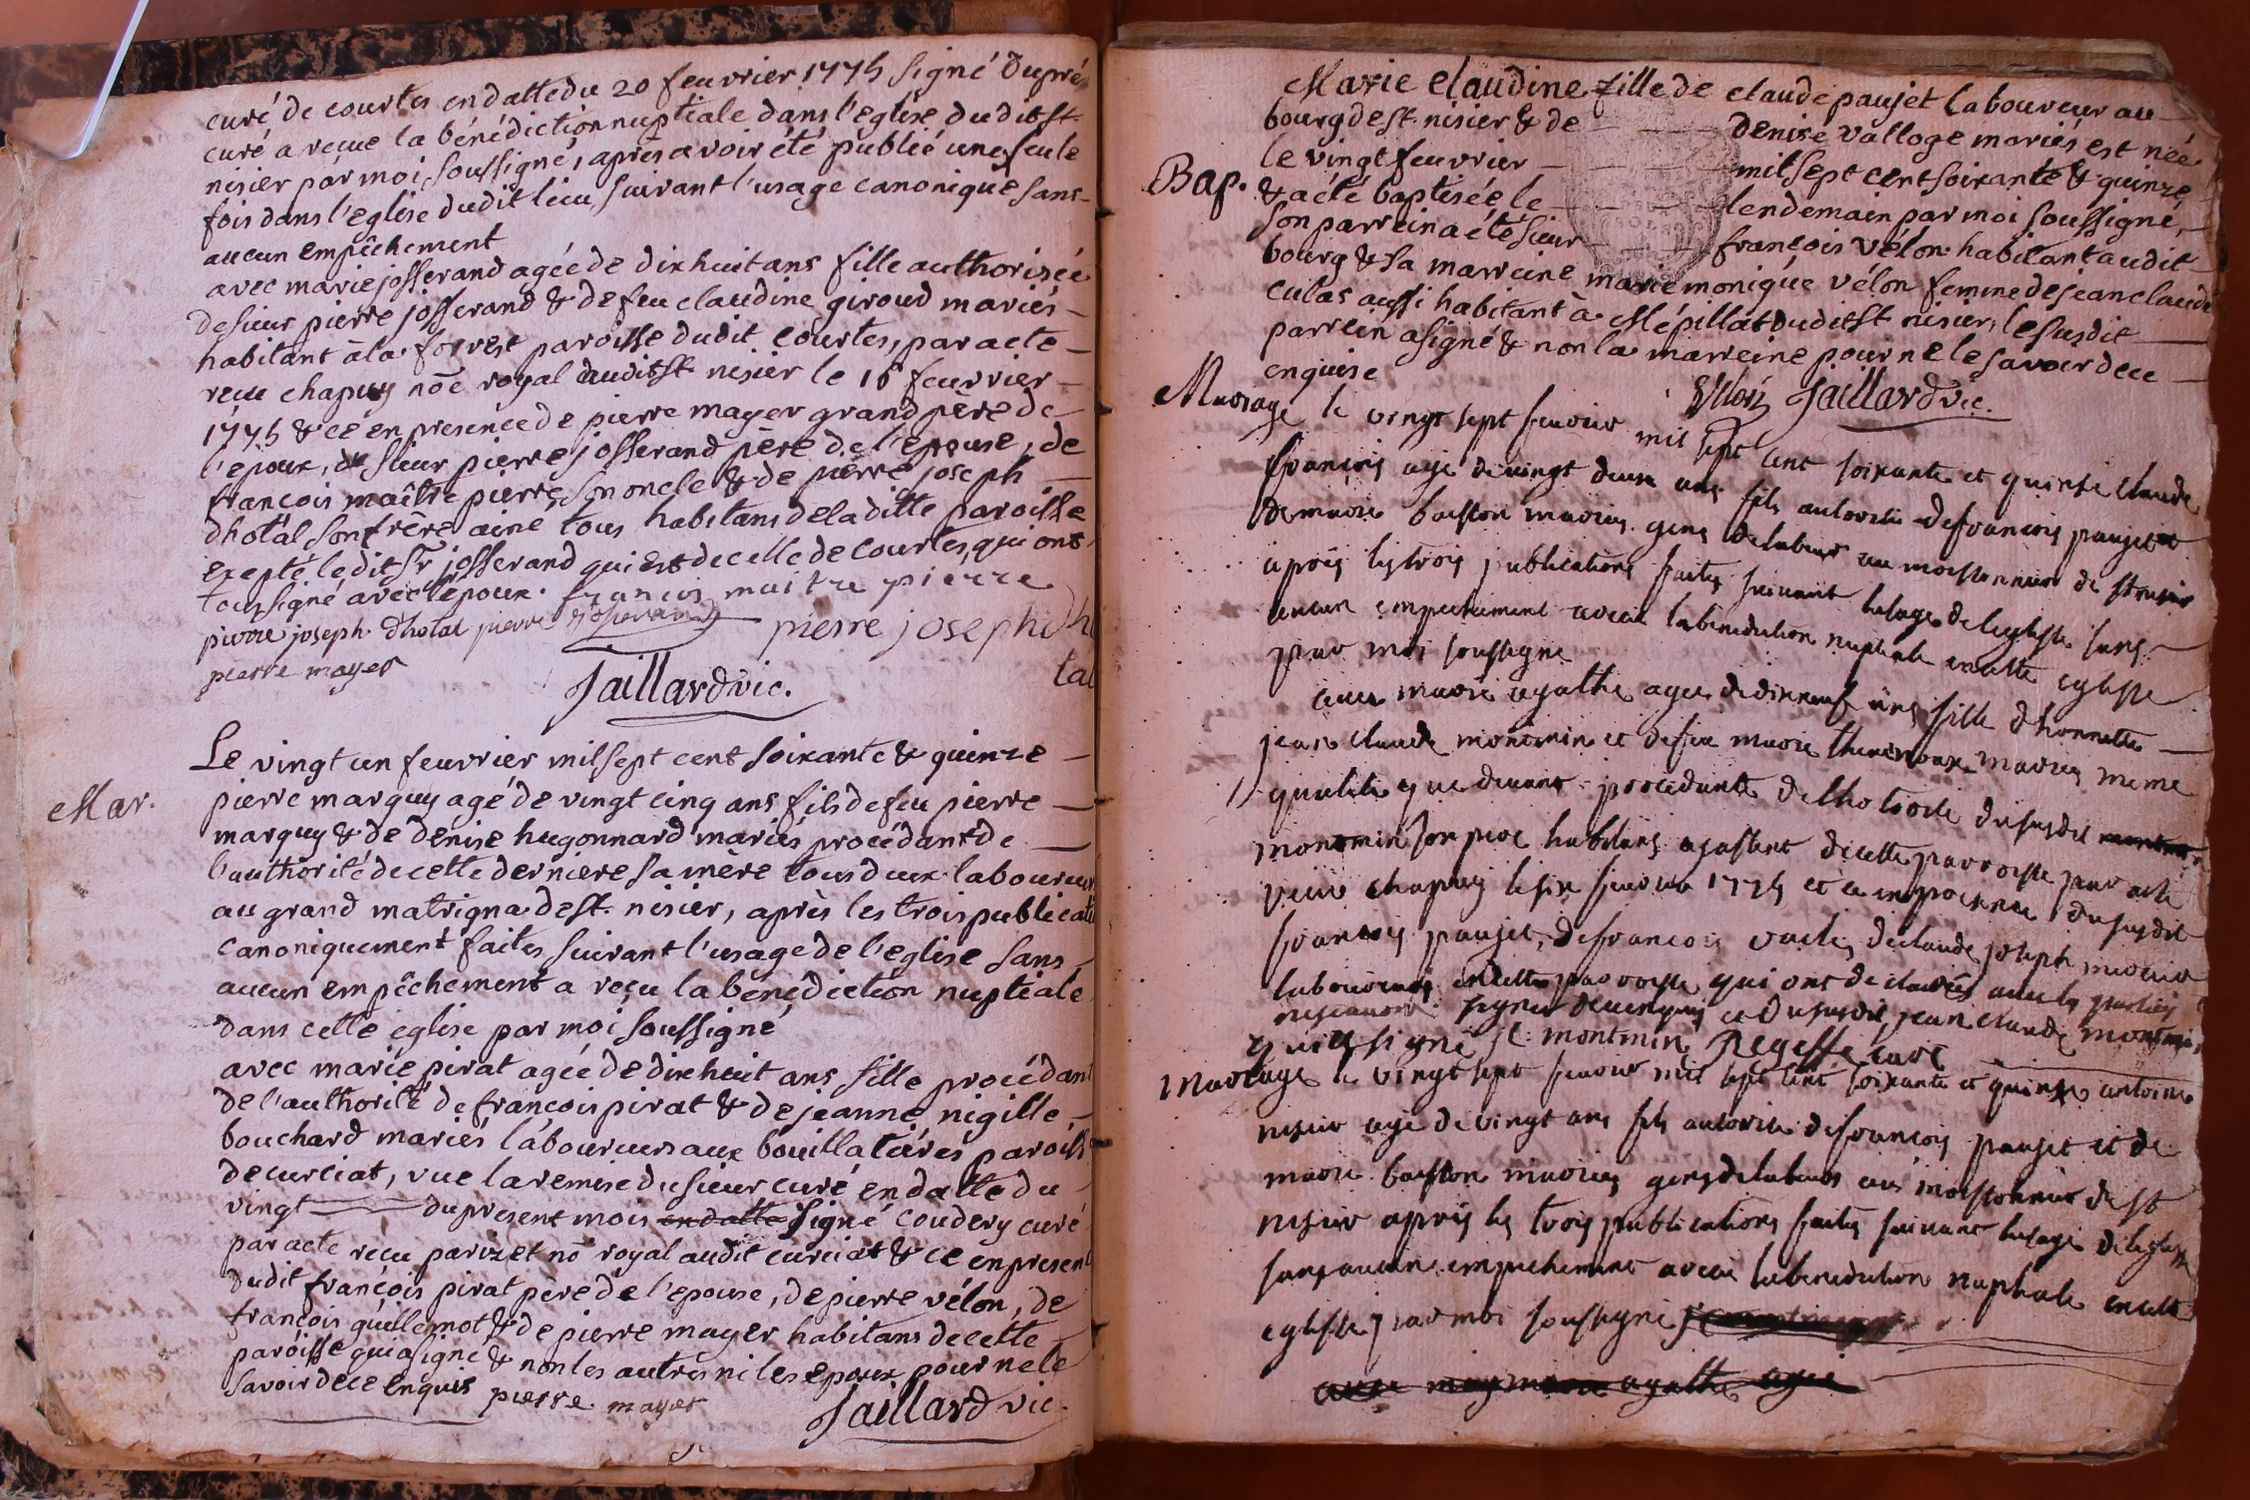 curé de courtes en datte du 20 feuvrier 1775 signé dupré
curé a reçue la bénédiction nuptiale dans l'eglise dudit st.
nisier par moi soussigné, après avoir été publié une seule
fois dans l'eglise dudit lieu suivant l'usage canonique sans
aucun empêchement
avec marie josserand agée de dix huit ans fille authorisée
de sieur pierre josserand & de feu claudine giroud mariés
habitant à la forest paroisse dudit courtes, par acte
reçu chapuy nõe royal dudit st nisier le 16 feuvrier
1775 & ce en presence de pierre mayer grand père de
l'epoux, du sieur pierre josserand père de l'epouse, de
francois maitre pierre son oncle & de pierre joseph
dhotal son frère ainé tous habitans de la ditte paroisse
exepté ledit sr josserand qui est de celle de courtes, qui ont
tous signé avec l'epoux. francois maitre pierre
pierre joseph dhotal pierre josserand pierre joseph dh
pierre mayer tal
Jaillard vic.
Mar.
Le vingt un feuvrier mil sept cent soixante & quinze
pierre marguy agé de vingt cinq ans fils de feu pierre
marguy & de denise hugonnard mariés procédant de
l'authorité de cette derniere sa mère tous deux laboureurs
au grand matrigna de st. nisier, après les trois publicati
canoniquement faites suivant l'usage de l'eglise sans
aucun empêchement a reçu la bénédiction nuptiale
dans cette église par moi soussigné
avec marie pirat agée de dix huit ans fille procédant
de l'authorité de francois pirat & de jeanne nigille
bouchard mariés laboureurs aux bouillatières paroiss
de curciat, vue la remise du sieur curé en datte du
vingt du present mois en datte signé coudery curé
par acte reçu parizet nõ royal audit curciat & ce en presen
dudit françois pirat père de l'epouse, de pierre vélon, de
françois guillemot & de pierre mayer habitans de cette
paroisse qui a signé & non les autres ni les epoux pour ne le
savoir de ce enquis pierre mayer
Jaillard vic.
Marie claudine fille de claude paujet laboureur au
bourg de st. nisier & de denise valloge mariés est née
Bap.
le vingt feuvrier mil sept cent soixante & quinze
& a été baptisée le lendemain par moi soussigné,
son parrein a été sieur françois vélon habitant audit
bourg & sa marreine marie monique vélon femme de jean claude
culas aussi habitant à Mépillat dudit st nisier, le susdit
parrein a signé & non la marreine pour ne le savoir de ce
enquise
Vélon Jaillard vic.
Mariage le vingt sept feuvrier mil sept cent soixante et quinze claude
françois agé de vingt deux ans fils autorisé de francois paujet et
de marie baston mariés gens de labeur au moissonnier de st nisier
après les trois publications faites suivant lusage de leglisse sans
aucun empechement a recu la benediction nuptiale en cette eglisse
par moi soussigné
avec marie agathe agee de dixneuf ans fille dhonnette
jean claude montmin et de feu marie thenenoux mariés meme
qualité que devant procedante de lhotorité du susdit
montmin son pere habitans de cette parroisse par acte
recu chapuy le six feuvrier 1775 et ce en presence du susdit
francois paujet, de francois de claude joseph
laboureurs en cette parroisse qui ont declarés avec les parties
ne scavoir signer de ce enquis et du susdit jean claude montmin
qui a signé jc montmin Regeffe curé
Mariage le vingt sept feuvrier mil sept cent soixante et quinze antoine
nisier agé de vingt ans fils autorisé de francois paujet et de
marie baston mariés gens de labeur au moissonnier de st
nisier après les trois publications faites suivant lusage de leglisse
sans aucun empechement a recu la benediction nuptiale en cette
eglisse par moi soussigné
avec marie agathe agée